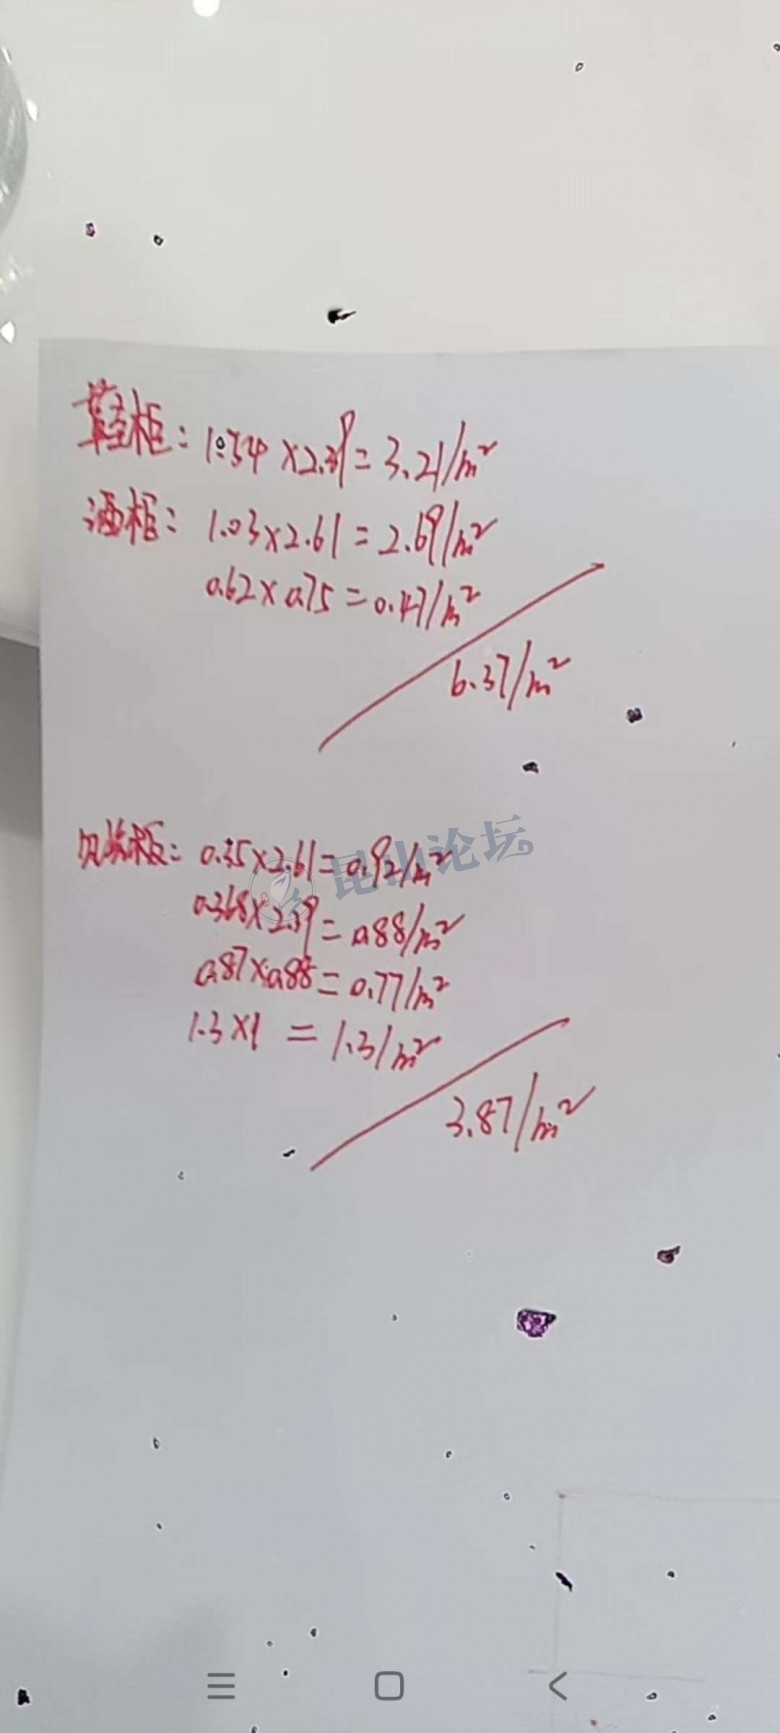 鞋柜：1.34×2.39=3.21/m²
酒柜：1.03×2.61=2.69/m²
0.62×0.75=0.47/m²
6.37/m²
见光板：0.35×2.61=0.92/m²
0.368×2.39=0.88/m²
0.87×0.88=0.77/m²
1.3×1=1.3/m²
3.87/m²
昆山论坛